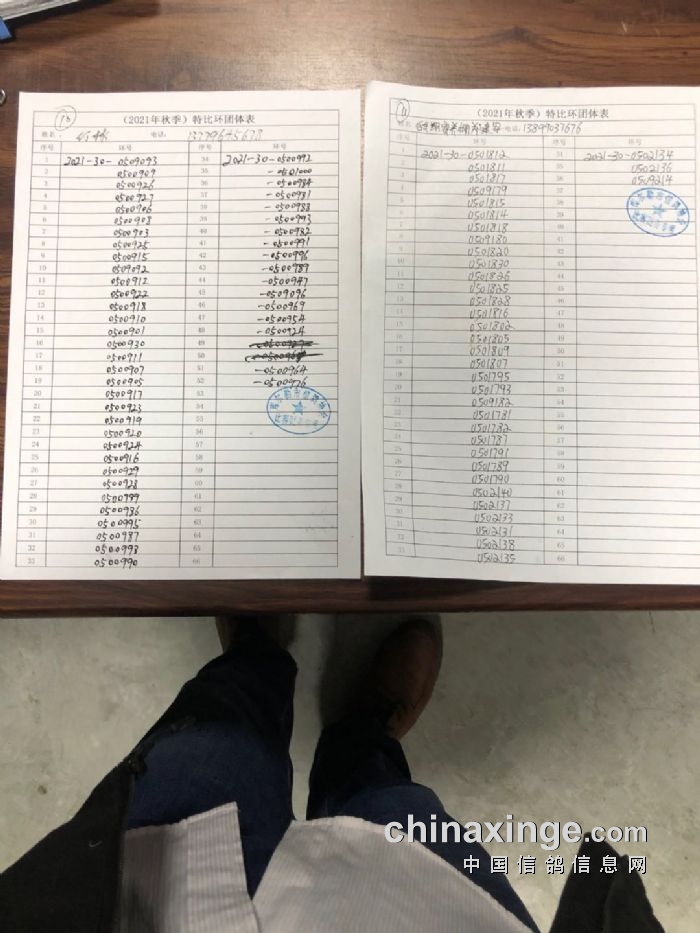 (2021年秋季)特比环团体表
姓名 电话: 13779645678
序号 环号 序号 环号
1 2021-30-0509093 34 2021-30-0500992
2 0500909 35 -0501000
3 0500926 36 -0500984
4 0500927 37 -0500981
5 0500906 38 -0500988
6 0500908 39 -0500993
7 0500903 40 -0500982
8 0500925 41 -0500991
9 0500915 42 -0500996
10 0509092 43 -0500989
11 0500912 44 -0500947
12 0500922 45 -0509096
13 0500918 46 -0500969
14 0500910 47 -0500954
15 0500901 48 -0500924
16 0500930 49
17 0500911 50
18 0500907 51 -0500964
19 0500905 52 -0500976
20 0500917 53
21 0500923 54
22 0500919 55
23 0500920 56
24 0500924 57
25 0500916 58
26 0500929 59
27 0500928 60
28 0500999 61
29 0500986 62
30 0500995 63
31 0500987 64
32 0500998 65
33 0500990 66
(2021年秋季)特比环团体表
姓名 电话: 13899037676
序号 环号 序号 环号
1 2021-30-0501812 34 2021-30-0502134
2 0501811 35 0502136
3 0501817 36 0509214
4 0509179 37
5 0501815 38
6 0501814 39
7 0501818 40
8 0509180 41
9 0501820 42
10 0501830 43
11 0501826 44
12 0501825 45
13 0501828 46
14 0501816 47
15 0501802 48
16 0501805 49
17 0501809 50
18 0501807 51
19 0501795 52
20 0501793 53
21 0509182 54
22 0501781 55
23 0501782 56
24 0501787 57
25 0501791 58
26 0501789 59
27 0501790 60
28 0502140 61
29 0502137 62
30 0502133 63
31 0502131 64
32 0502138 65
33 0502135 66
chinaxinge.com
中国信鸽信息网